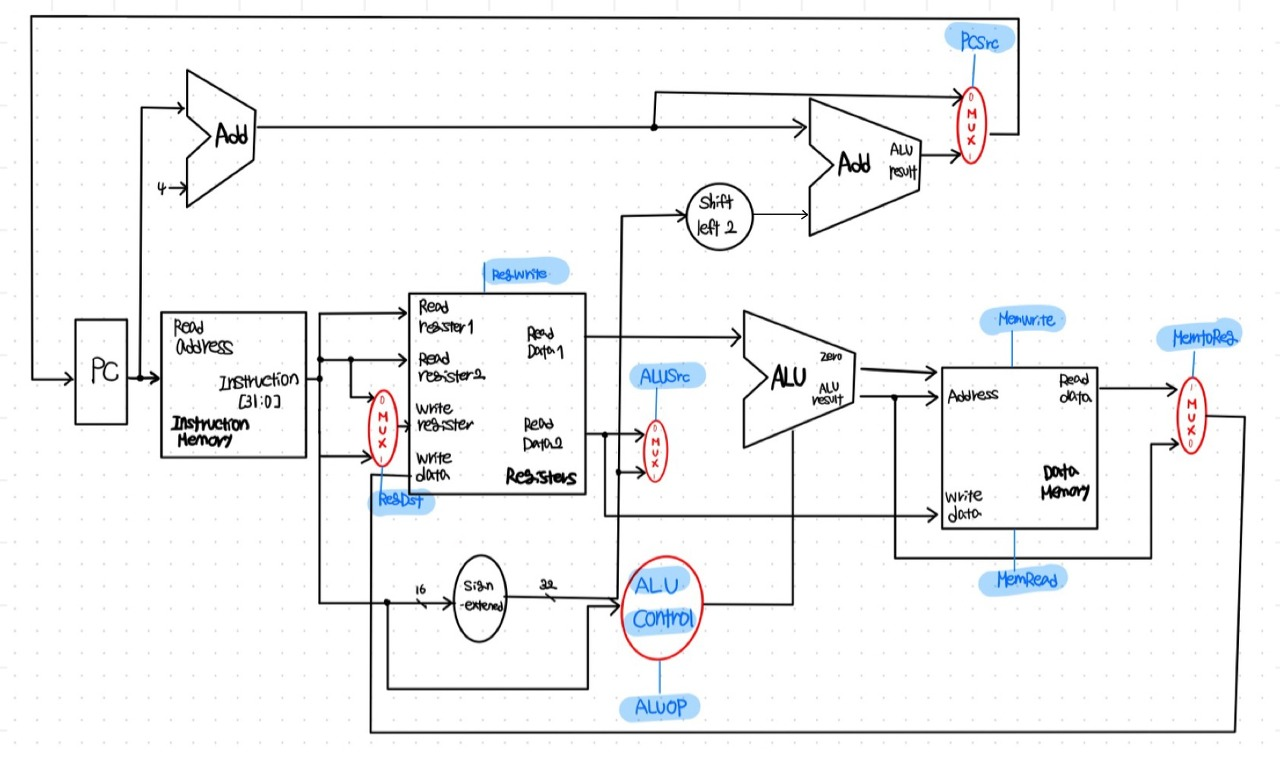 PCSrc
0
M
U
X
1
Add
4
Add
ALU
result
Shift
left 2
RegWrite
PC
Read
Address
Instruction
[31:0]
Instruction
Memory
Read
register1
Read
register2
Write
register
Write
data
Read
Data1
Read
Data2
Registers
0
M
U
X
1
RegDst
ALUSrc
0
M
U
X
1
ALU
zero
ALU
result
MemWrite
Address
Read
data
Write
data
Data
Memory
MemRead
MemtoReg
1
M
U
X
0
16
Sign
-extened
32
ALU
Control
ALUOP